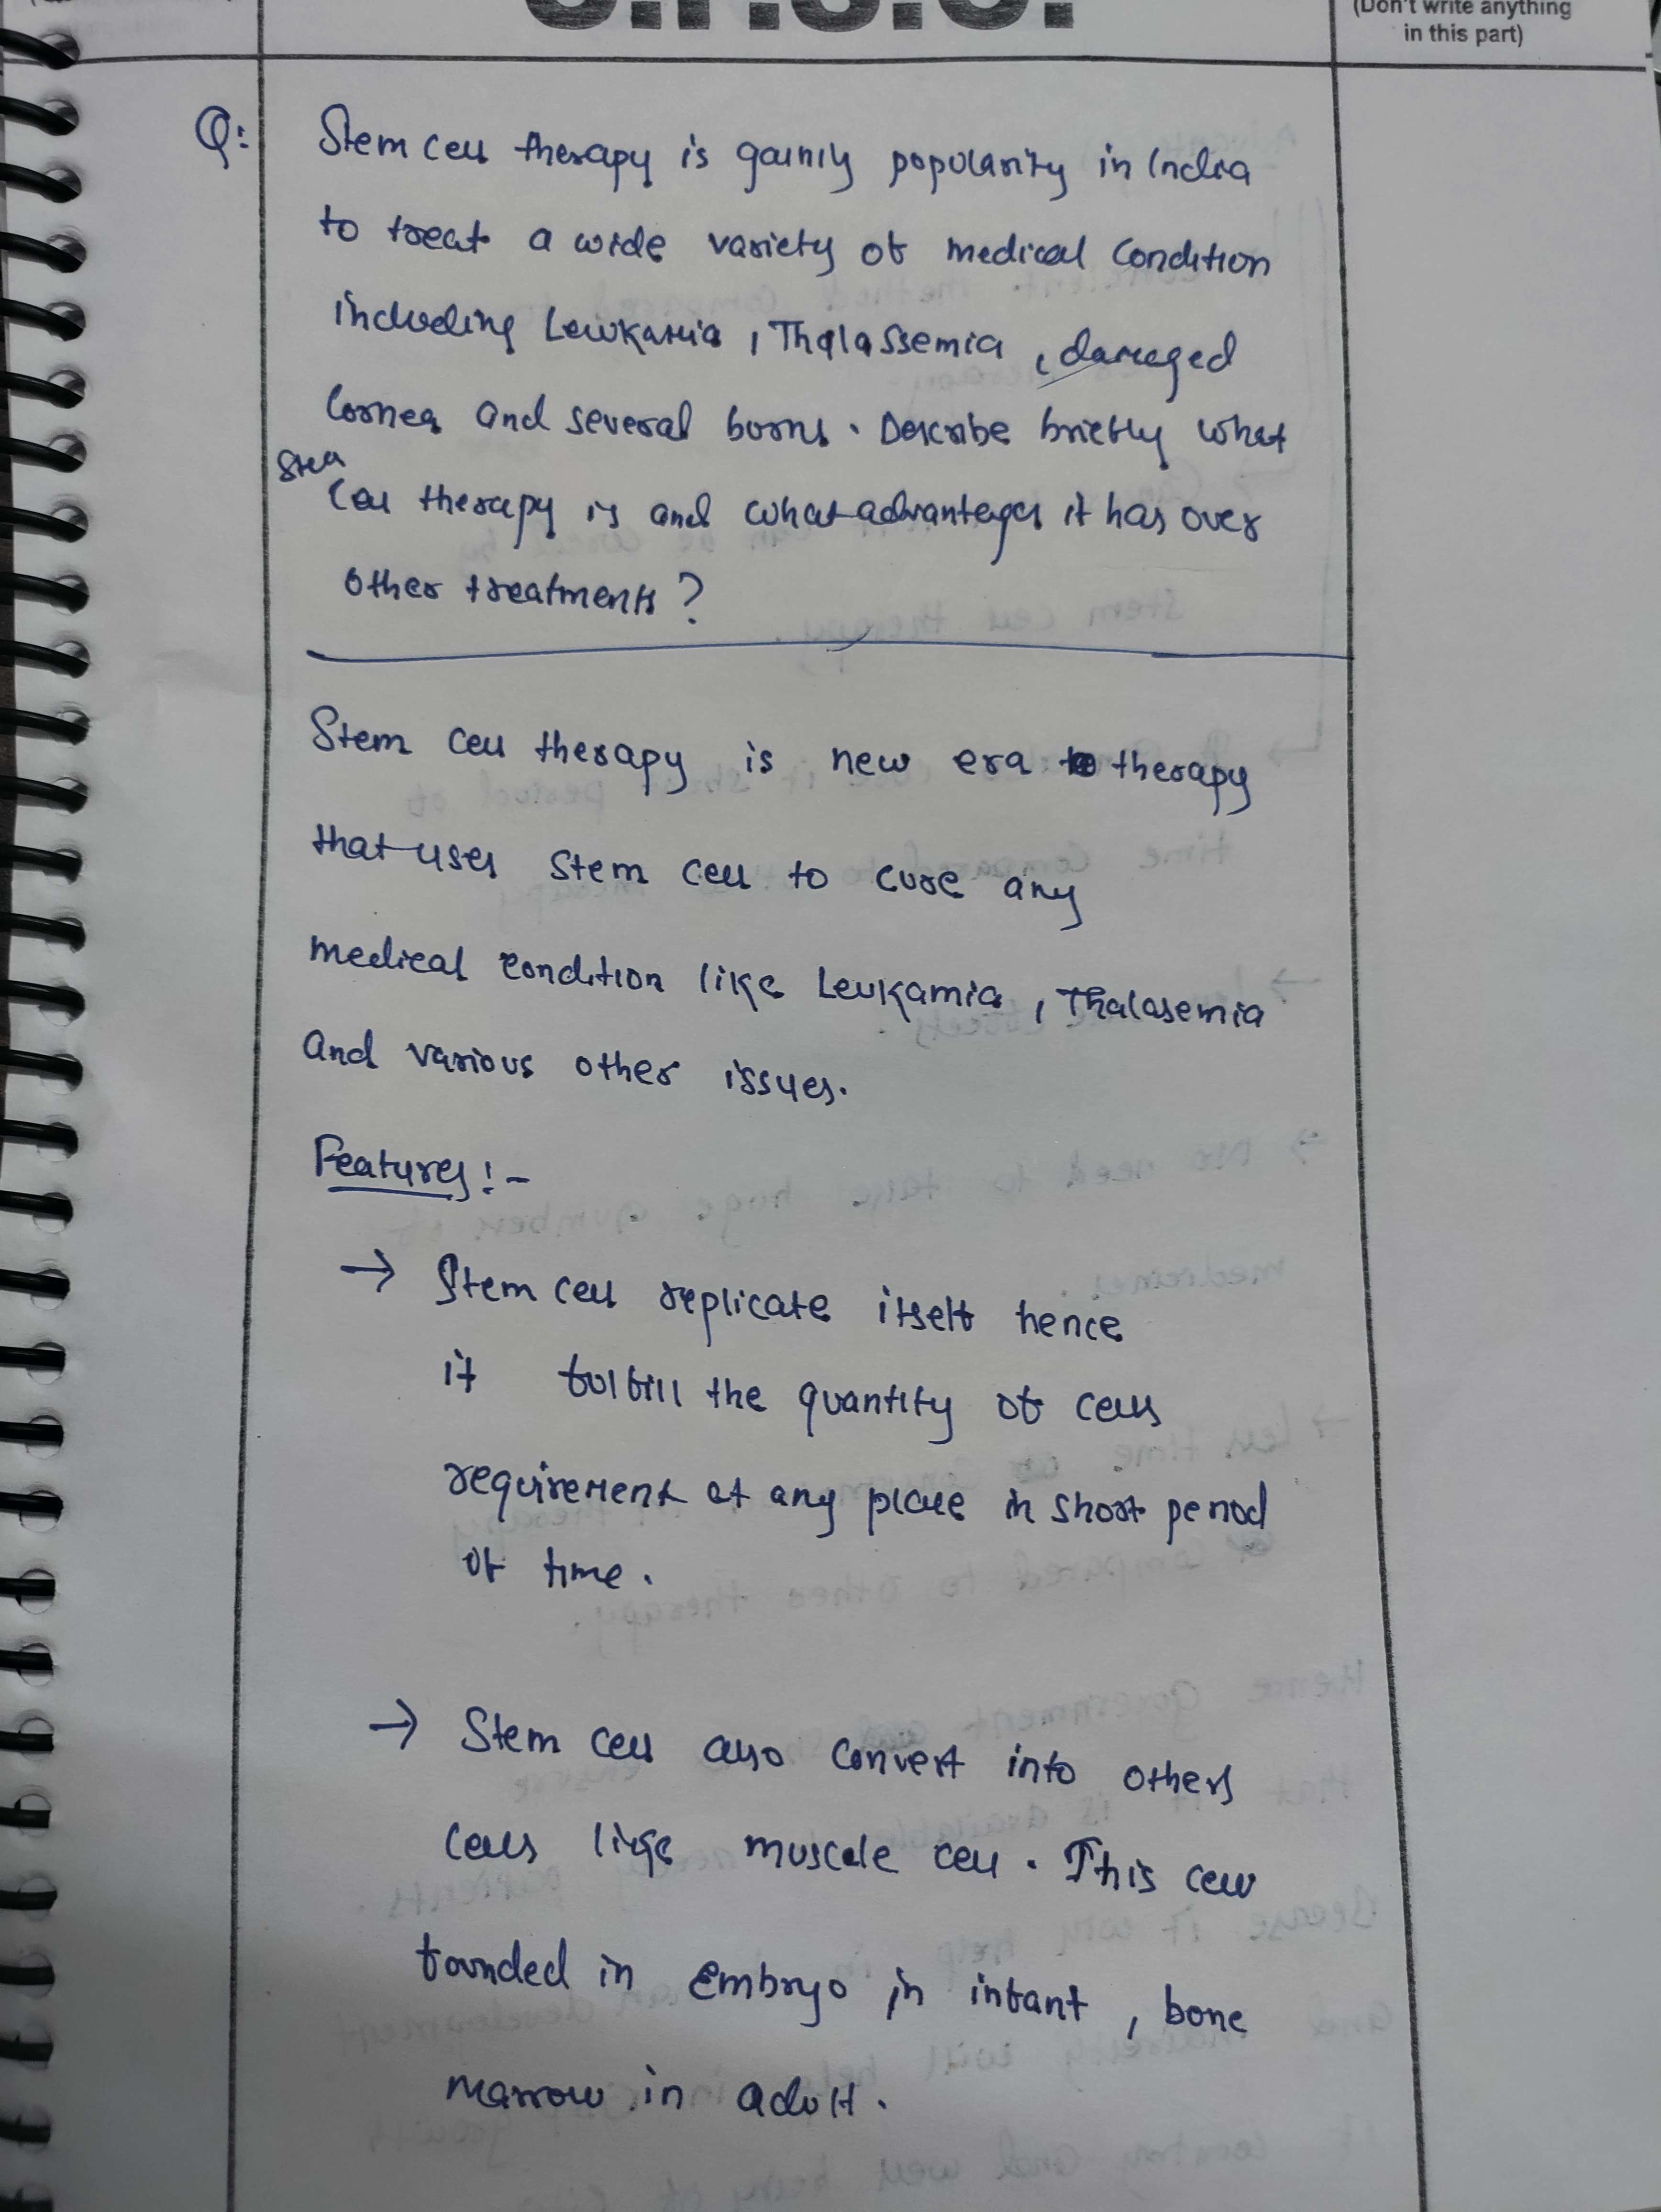 (Don't write anything
in this part)
Q: Stem cell therapy is gainily popularity in India
to treat a wide variety of medical condition
including Lewkamia, Thalassemia, damaged
Cornea and several borns. Describe briefly what
Stem
Cell therapy is and what advantages it has over
other treatments?
Stem cell therapy is new era to therapy
that uses stem cell to cure any
medical condition like Leukamia, Thalasemia
and various other issues.
Features:-
→ Stem cell replicate itself hence
it fulfill the quantity of cells
requirement at any place in short period
of time.
→ Stem cell also convert into others
cells like muscele cell. This cell
founded in embryo in infant, bone
marrow in adult.